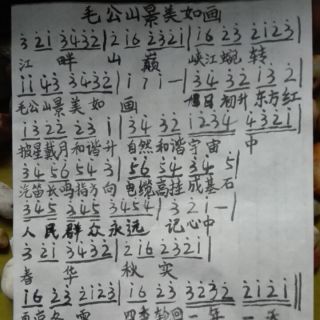 毛公山景美如画
3 2 i 3432 | 2 i 6 232i | i6 23 2i23 |
江 畔 山 巅 峡江蜿 转
ii 43 3432 | i 7 i — | 34 32 i3 2 |
毛公山景美 如 画 旭日初升 东方红
i3 22 23 i | 34 32 i234 432i
披星戴月和谐升 自然和谐宇宙 中
34 56 54 3 | 56 54 34 5 |
汽笛长鸣指方向 电缆高挂成基石
345 345 3454 | 3 2 i — |
人民群众永远 记心中
3 2i 3432 | 2 i6 232i |
春 华 秋 实
i6 23 2i23 | i6 23 3232 2i2i |
四季轮回一年